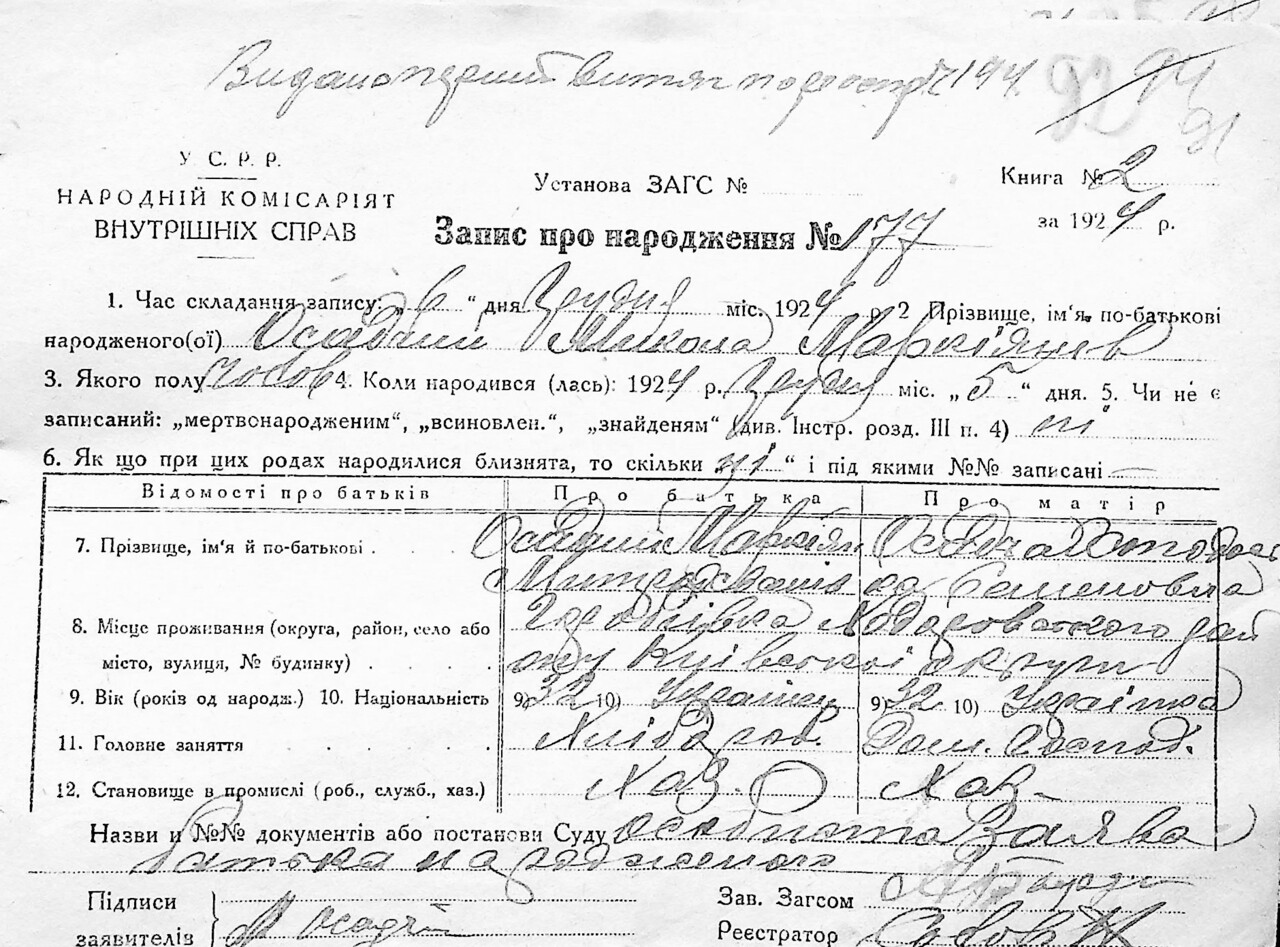 Видано перший витяг по реєстр 194
92 94
91
У. С. Р. Р.
НАРОДНІЙ КОМІСАРІЯТ
ВНУТРІШНІХ СПРАВ
Установа ЗАГС №
Книга № 2
за 1924 р.
Запис про народження № 177
1. Час складання запису: „6“ дня Грудня міс. 1924 р. 2 Прізвище, ім'я, по-батькові
народженого(ої) Осадчий Микола Маркіянів
3. Якого полу Чолов 4. Коли народився (лась): 1924 р. Грудня міс. „5“ дня. 5. Чи не є
записаний: „мертвонародженим“, „всиновлен.“, „знайденям“ (див. Інстр. розд. III п. 4) ні
6. Як що при цих родах народилися близнята, то скільки ні “ і під якими №№ записані —
Відомості про батьків Про батька Про матір
7. Прізвище, ім'я й по-батькові . . . . Осадчий Маркіян Осадча
Митрофанів Семеновна
8. Місце проживання (округа, район, село або
місто, вулиця, № будинку) . . . . Київської округи
9. Вік (років од народж.) 10. Національність 9) 32 10) Українец 9) 32 10) Українка
11. Головне заняття . . . . . Хлібороб. Дом. господ.
12. Становище в промислі (роб., служб., хаз.) Хаз. Хаз.
Назви и №№ документів або постанови Суду особиста Заява
батька народженого
Підписи
заявителів
М Осадчій
Зав. Загсом
Реєстратор